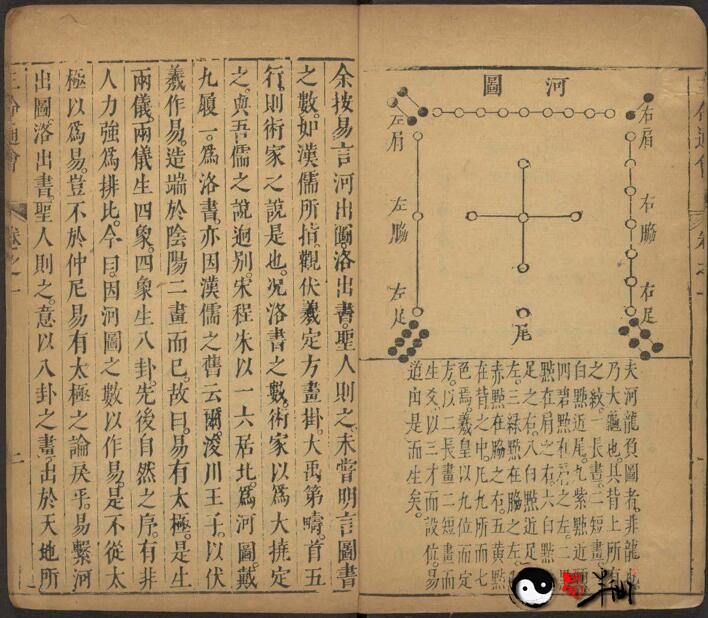 河圖
右肩
右脇
右足
左肩
左脇
左足
尾
夫河龍負圖者非龍
乃大龜也其背上所
之紋一長畫二短畫
白點近尾九紫點近
四碧點在肩之左二
點在肩之右六白點
足之右八白點近
左三綠點在脇之左
赤點在脇之右五黃點
在背之中凡九所而七
色焉羲皇以九位而定
方以二長畫二短畫而
生爻以三才而設位易
道由是而生矣
余按易言河出圖洛出書聖人則之未嘗明言圖書
之數如漢儒所指觀伏羲定方畫掛大禹第疇首五
行則術家之說是也況洛書之數術家以爲大撓定
之與吾儒之說迥別宋程朱以一六居北爲河圖戴
九履一爲洛書亦因漢儒之舊云爾浚川王子以伏
羲作易造端於陰陽二畫而已故曰易有太極是生
兩儀兩儀生四象四象生八卦先後自然之序有非
人力強爲排比今曰因河圖之數以作易是不從太
極以爲易豈不於仲尼易有太極之論戾乎易繫河
出圖洛出書聖人則之意以八卦之畫出於天地所
三命通會 卷之一 二